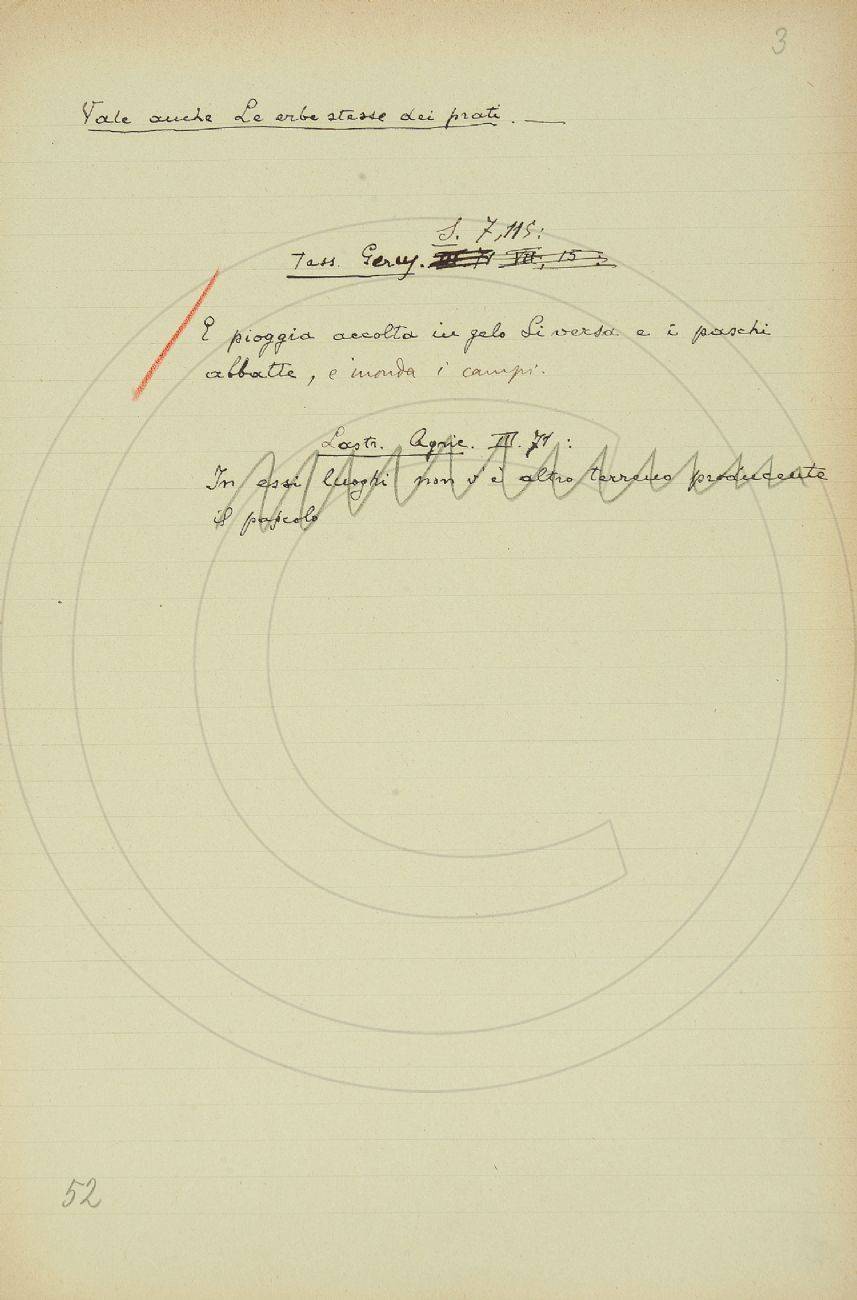 3
Vale anche Le erbe stesse dei prati. —
S. 7, 115:
Tass. Gerus. VII, 15:
E pioggia accolta in gelo Si versa e i paschi
abbatte, e inonda i campi.
Lastr. Agric. III. 71:
In essi luoghi non v'è altro terreno producente
il pascolo
52